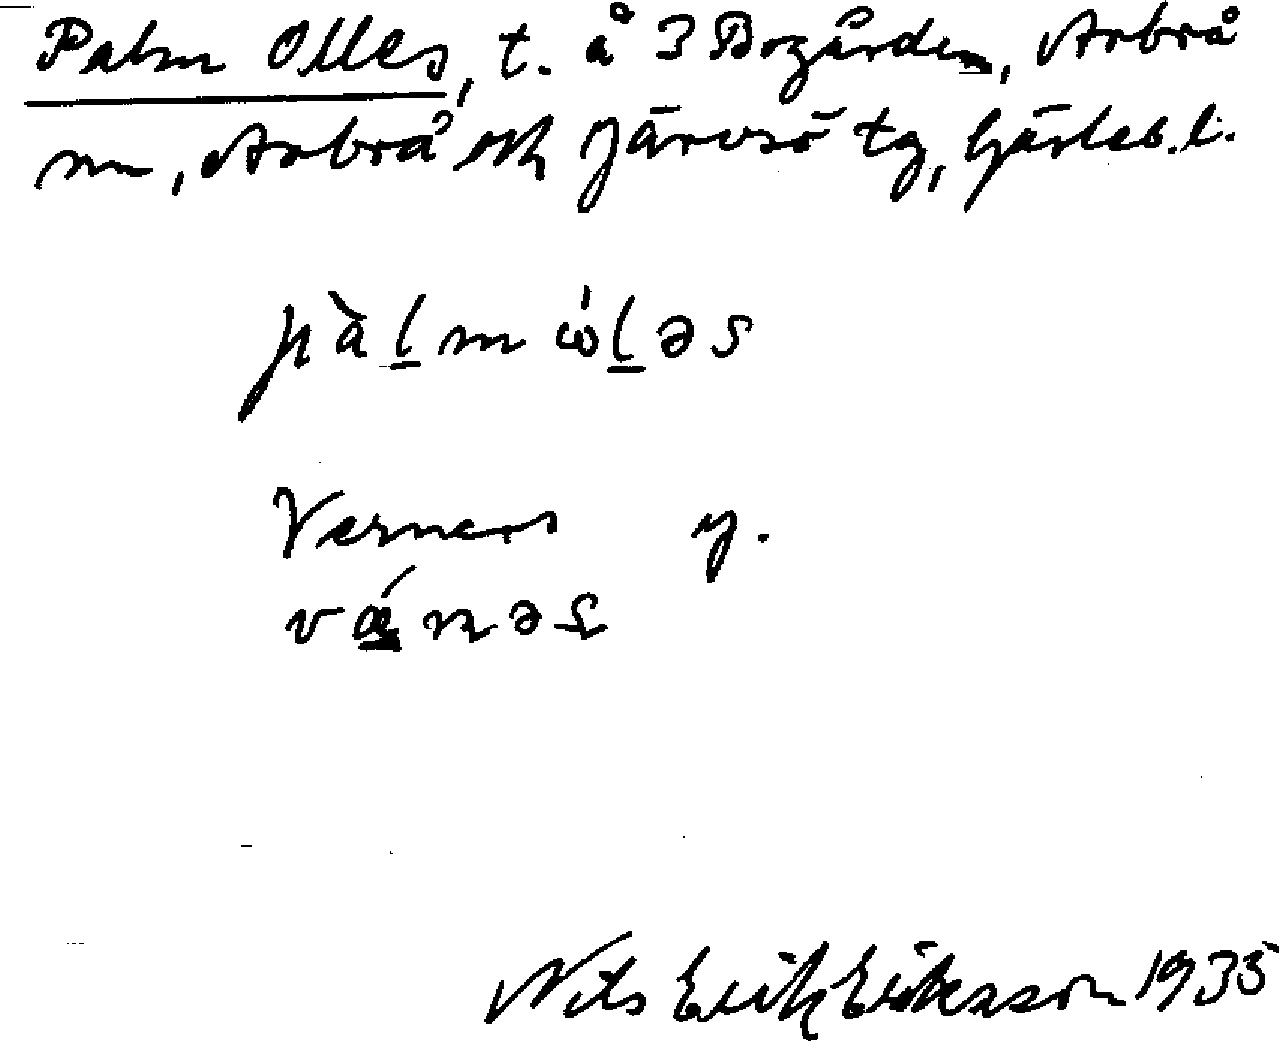 Palm Olles, t. å 3 Bogården, Arbrå
sn, Arbrå och Järvsö tg, Gävleb. l.
pàl̲m ώl̲əs
Verners y.
vá̲nəs
Nils Erik Eriksson 1935